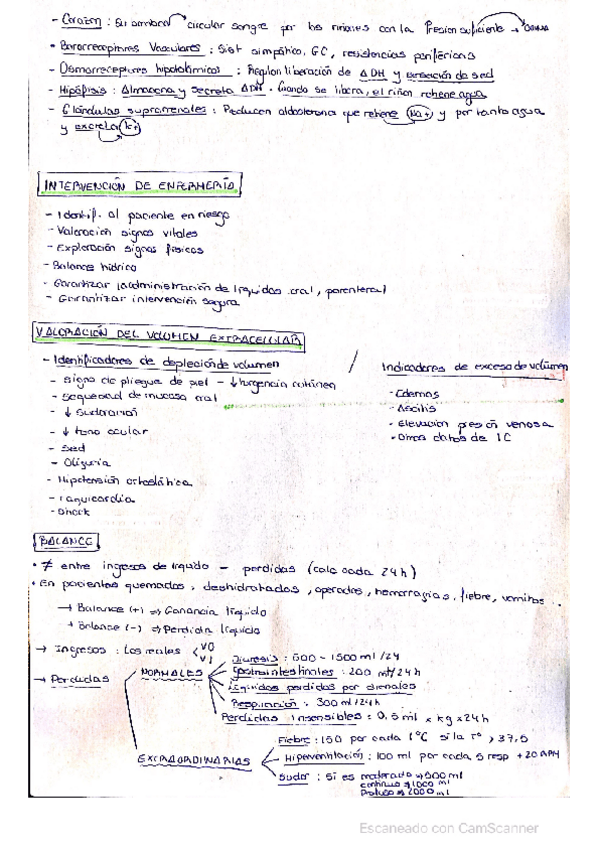 - Corazón : Su simbral circular sangre por los riñones con la Presión suficiente →
• Barorreceptores Vasculares : Sist simpático, GC, resistencias periféricas
- Osmorreceptores hipotalámicos : Regulan liberación de ADH y sensación de sed
- Hipófisis : Almacena y secreta ADH. Cuando se libera, el riñón retiene agua
- Glándulas suprarrenales : Producen aldosterona que retiene Na+ y por tanto agua
y excreta K+
INTERVENCIÓN DE ENFERMERÍA
- Identif. al paciente en riesgo
- Valoración signos vitales
- Exploración signos físicos
- Balance hídrico
- Garantizar la administración de líquidos oral, parenteral
- Garantizar intervención segura
VALORACIÓN DEL VOLUMEN EXTRACELULAR
- Identificadores de depleción de volumen
- Signo de pliegue de piel - ↓ turgencia cutánea
- Sequedad de mucosa oral
- ↓ sudoración
- ↓ tono ocular
- Sed
- Oliguria
- Hipotensión ortostática
- Taquicardia
- Shock
Indicadores de exceso de volumen
- Edemas
- Ascitis
- Elevación presión venosa
- Otros datos de IC
BALANCE
• ≠ entre ingresos de líquido - perdidas (calc cada 24h)
• En pacientes quemados, deshidratados, operados, hemorragias, fiebre, vómitos..
→ Balance (+) ⇒ Ganancia líquido
→ Balance (-) ⇒ Perdida líquido
→ Ingresos : Los reales < VO
VI
→ Perdidas
NORMALES
Diuresis : 500 - 1500 ml/24
Gastrointestinales : 200 ml/24h
Líquidos perdidos por drenajes
Respiración : 300 ml/24h
Perdidas Insensibles : 0,5 ml x kg x 24h
EXTRAORDINARIAS
Fiebre : 150 por cada 1°C si la tª > 37,5
Hiperventilación : 100 ml por cada 5 resp +20 RPM
Sudor : Si es moderado → 500 ml
continuo → 1000 ml
Profuso → 2000 ml
Escaneado con CamScanner